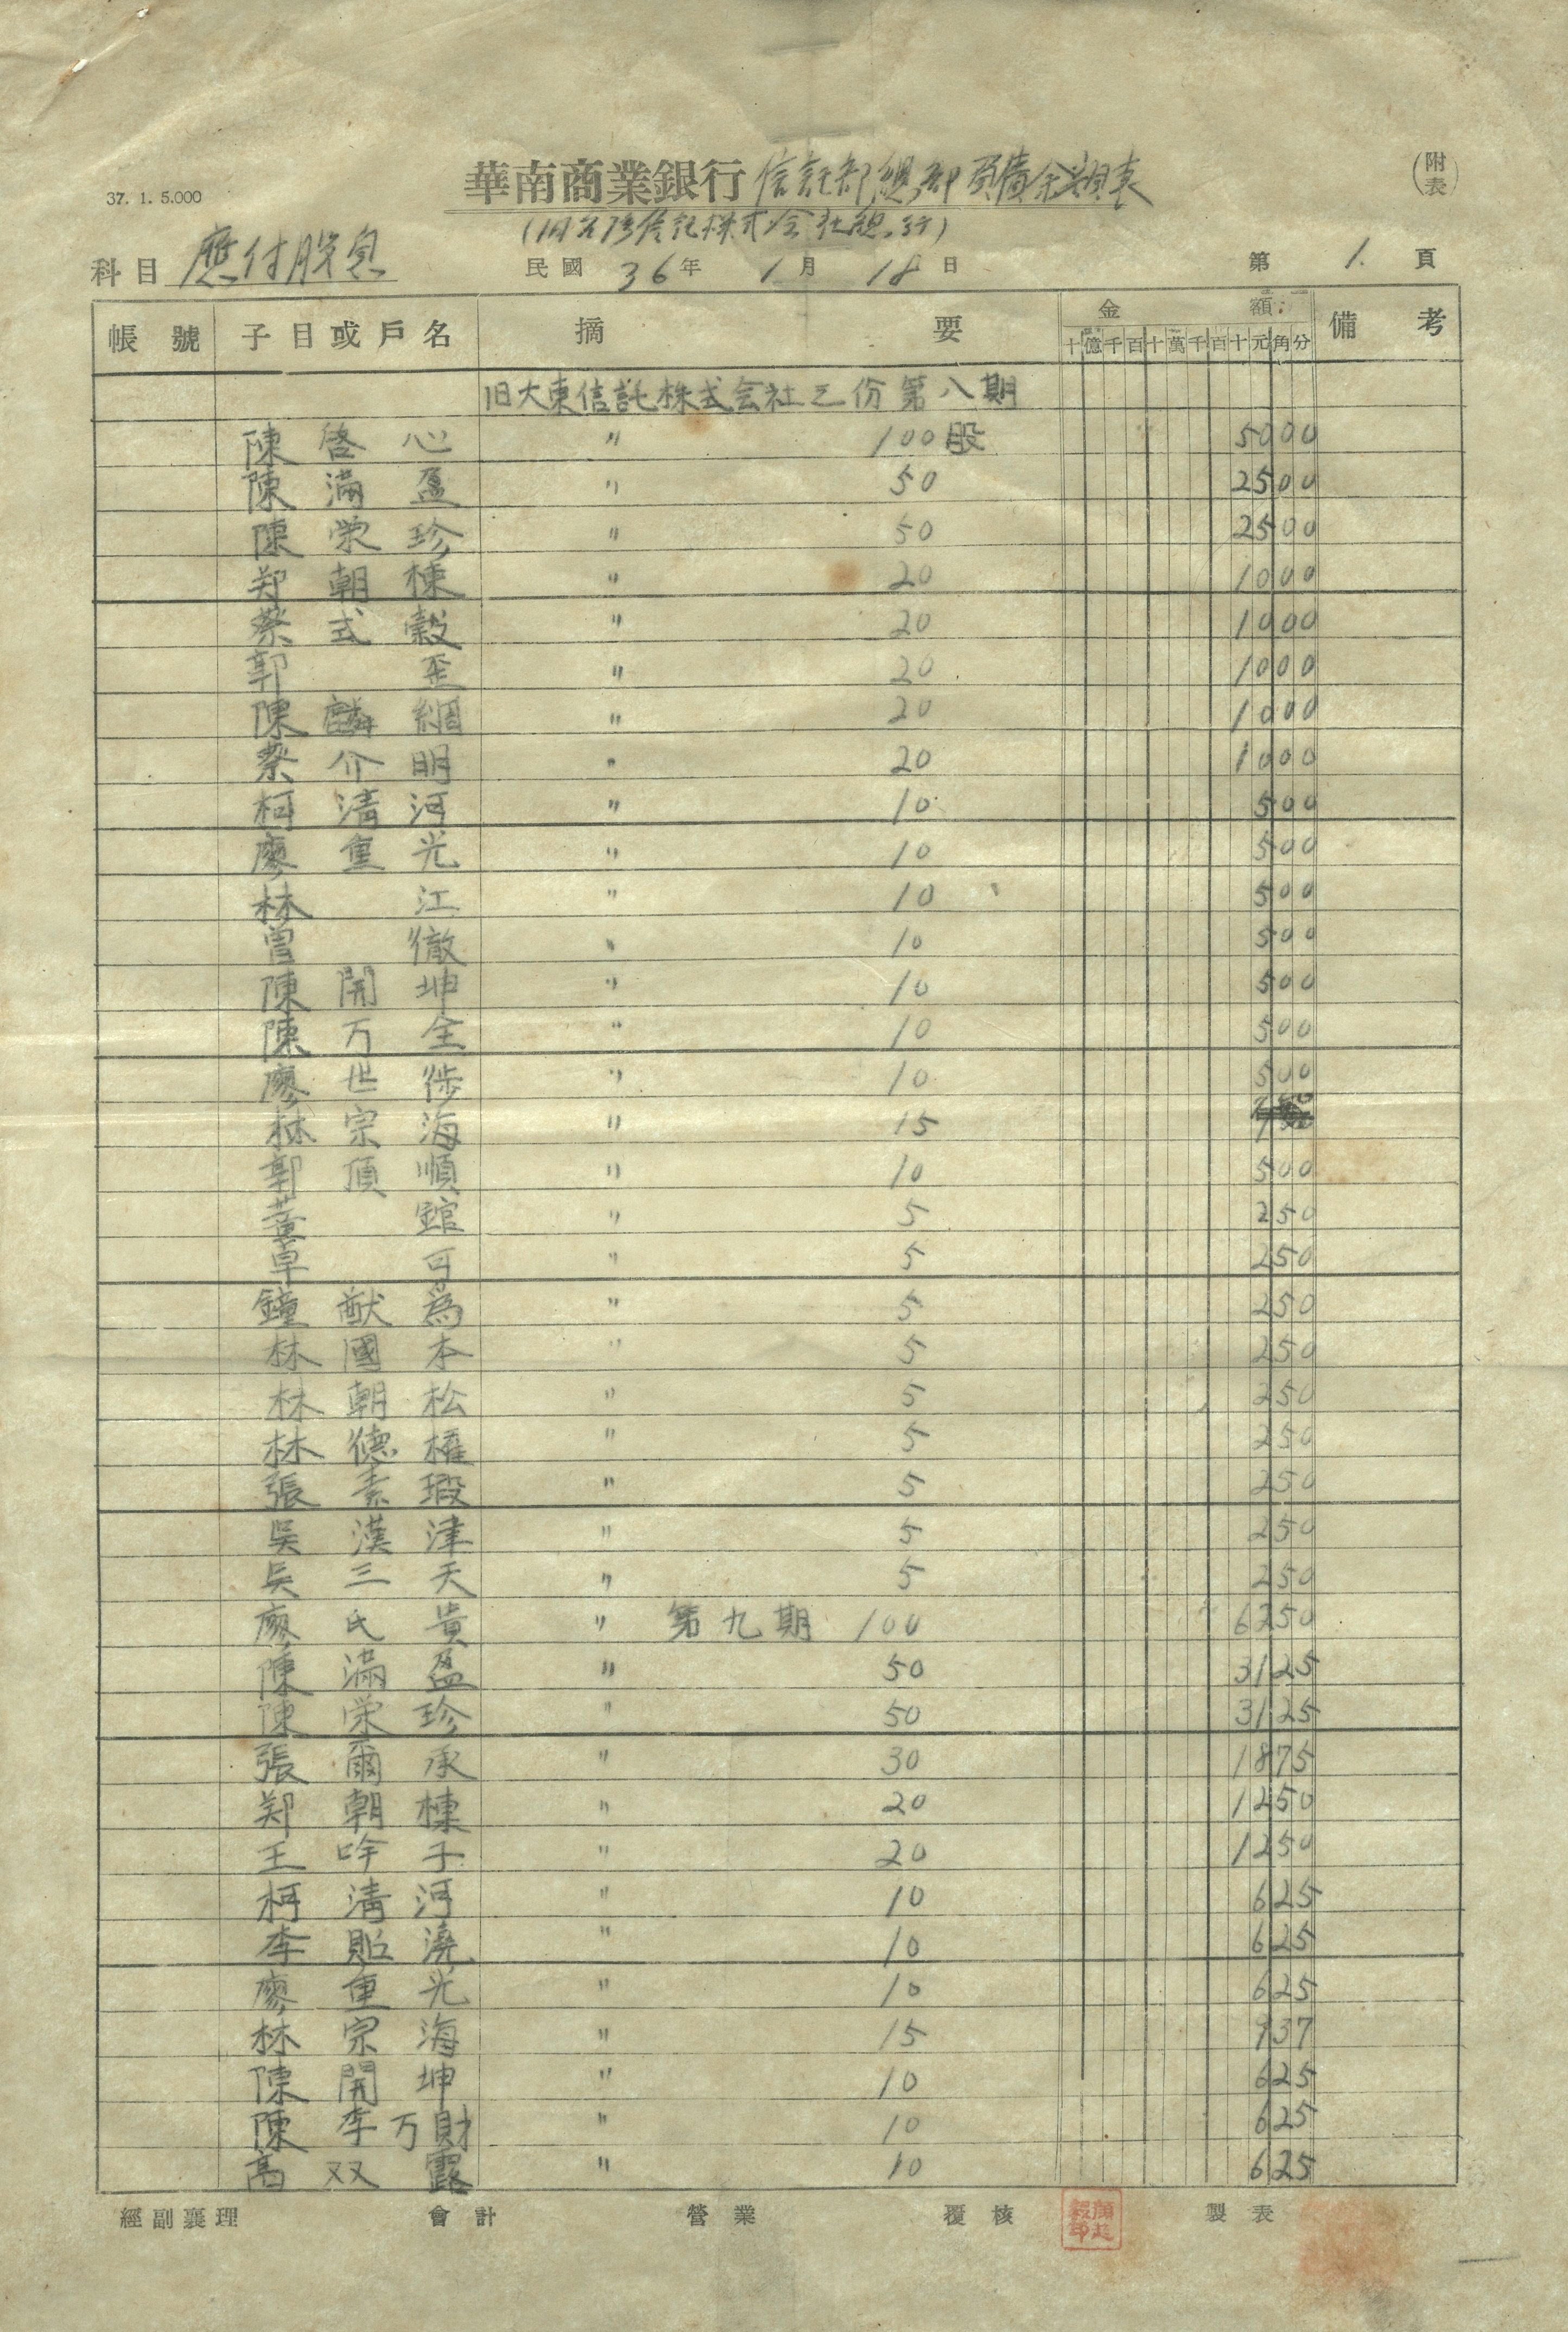 37. 1. 5.000
華南商業銀行 信託部總部 負債余額表
(附表)
(旧台湾信託株式会社總行)
科目 應付股息
民國 36年 1月 18日
第 1. 頁
帳號 子目或戶名 摘要 金額 備考
十億千百十萬千百十元角分
旧大東信託株式会社之份第八期
陳啓心 〃 100股 5000
陳滿盈 〃 50 2500
陳栄珍 〃 50 2500
郑朝棟 〃 20 1000
蔡式穀 〃 20 1000
郭 〃 20 1000
陳麟綢 〃 20 1000
蔡介明 〃 20 1000
柯清河 〃 10 500
廖重光 〃 10 500
林江 〃 10 500
曾徹 〃 10 500
陳開坤 〃 10 500
陳万全 〃 10 500
廖世 〃 10 500
林宗海 〃 15
郭頂順 〃 10 500
館 〃 5 250
卓可 〃 5 250
鐘猷為 〃 5 250
林國本 〃 5 250
林朝松 〃 5 250
林德權 〃 5 250
張素瑕 〃 5 250
吳漢津 〃 5 250
吳三天 〃 5 250
廖氏貴 〃 第九期 100 6250
陳滿盈 〃 50 3125
陳栄珍 〃 50 3125
張爾承 〃 30 1875
郑朝棟 〃 20 1250
王吟子 〃 20 1250
柯清河 〃 10 625
李貽澆 〃 10 625
廖重光 〃 10 625
林宗海 〃 15 937
陳開坤 〃 10 625
陳李万財 〃 10 625
高双露 〃 10 625
經副襄理 會計 營業 覆核 製表